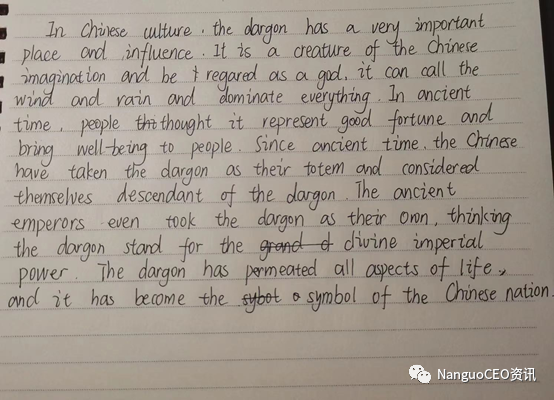 In Chinese culture, the dargon has a very important
place and influence. It is a creature of the Chinese
imagination and be regared as a god, it can call the
wind and rain and dominate everything. In ancient
time, people thought it represent good fortune and
bring well-being to people. Since ancient time, the Chinese
have taken the dargon as their totem and considered
themselves descendant of the dargon. The ancient
emperors even took the dargon as their own, thinking
the dargon stand for the grand of divine imperial
power. The dargon has permeated all aspects of life,
and it has become the symbol of the Chinese nation.
NanguoCEO资讯